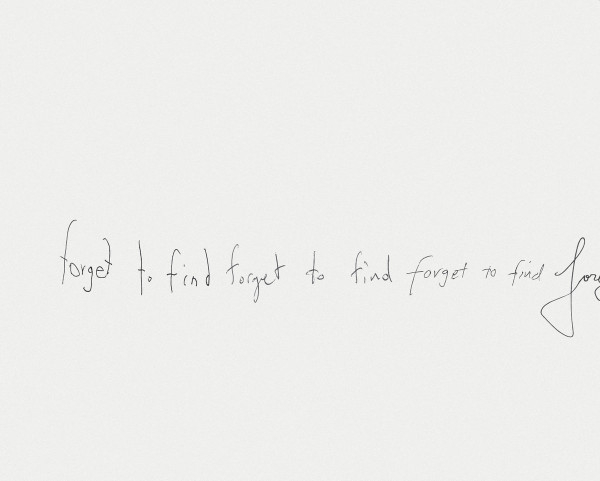 forget to find forget to find forget to find forg